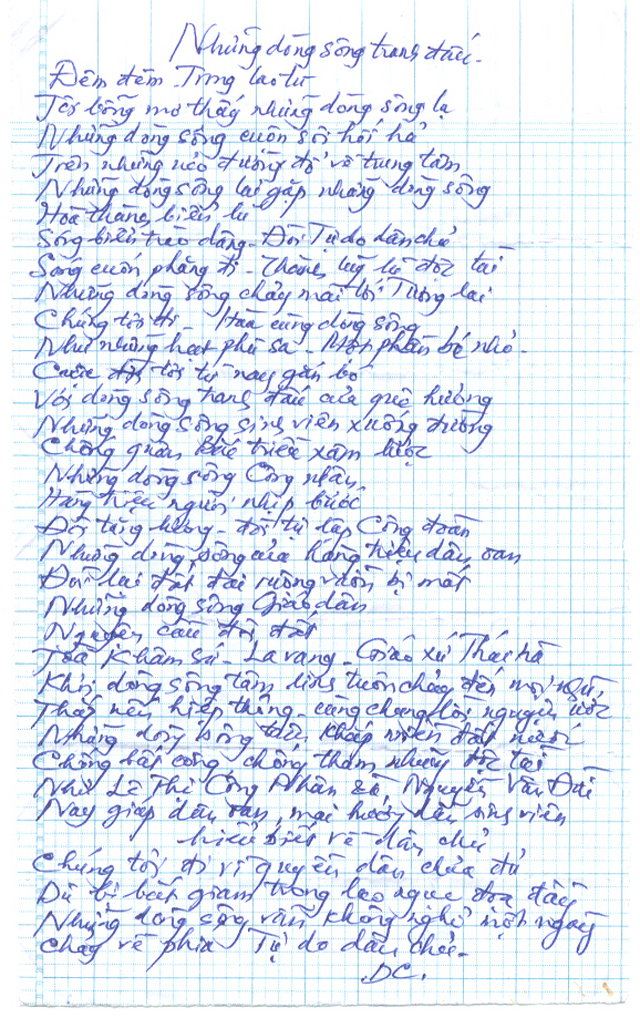 Những dòng sông tranh đấu.
Đêm đêm - Trong lao tù
Tôi bỗng mơ thấy những dòng sông lạ
Những dòng sông cuộn sôi hối hả
Trên những nẻo đường đổ về trung tâm
Những dòng sông lại gặp những dòng sông
Hoà thành biển lũ
Sóng biển trào dâng - Đòi Tự do dân chủ
Sóng cuốn phăng đi - thành luỹ lũ độc tài
Những dòng sông chảy mãi tới Tương lai
Chúng tôi đi - Hoà cùng dòng sông
Như những hạt phù sa - Một phần bé nhỏ -
Cuộc đời tôi từ nay gắn bó
Với dòng sông tranh đấu của quê hương
Những dòng sông sinh viên xuống đường
Chống quân Bắc triều xâm lược
Những dòng sông Công nhân
Hàng triệu người nhịp bước
Đòi tăng lương - đòi tự lập Công đoàn
Những dòng sông của hàng triệu dân oan
Đòi lại đất đai ruộng vườn bị mất
Những dòng sông Giáo dân
Nguyện cầu đòi đất
Toà Khâm Sứ - La vang - Giáo xứ Thái hà
Khơi dòng sông tâm linh tuôn chảy đến mọi nhà
Thắp nến hiệp thông - cùng chung lời nguyện ước
Những dòng sông trên khắp miền đất nước
Chống bất công chống tham nhũng độc tài
Như Lê Thị Công Nhân và Nguyễn Văn Đài
Nay giúp dân oan, mai hướng dẫn sinh viên
hiểu biết về dân chủ
Chúng tôi đi vì quyền dân chưa đủ
Dù bị bắt giam trong lao ngục đoạ đầy
Những dòng sông vẫn không nghỉ một ngày
Chảy về phía Tự do dân chủ.
DC.